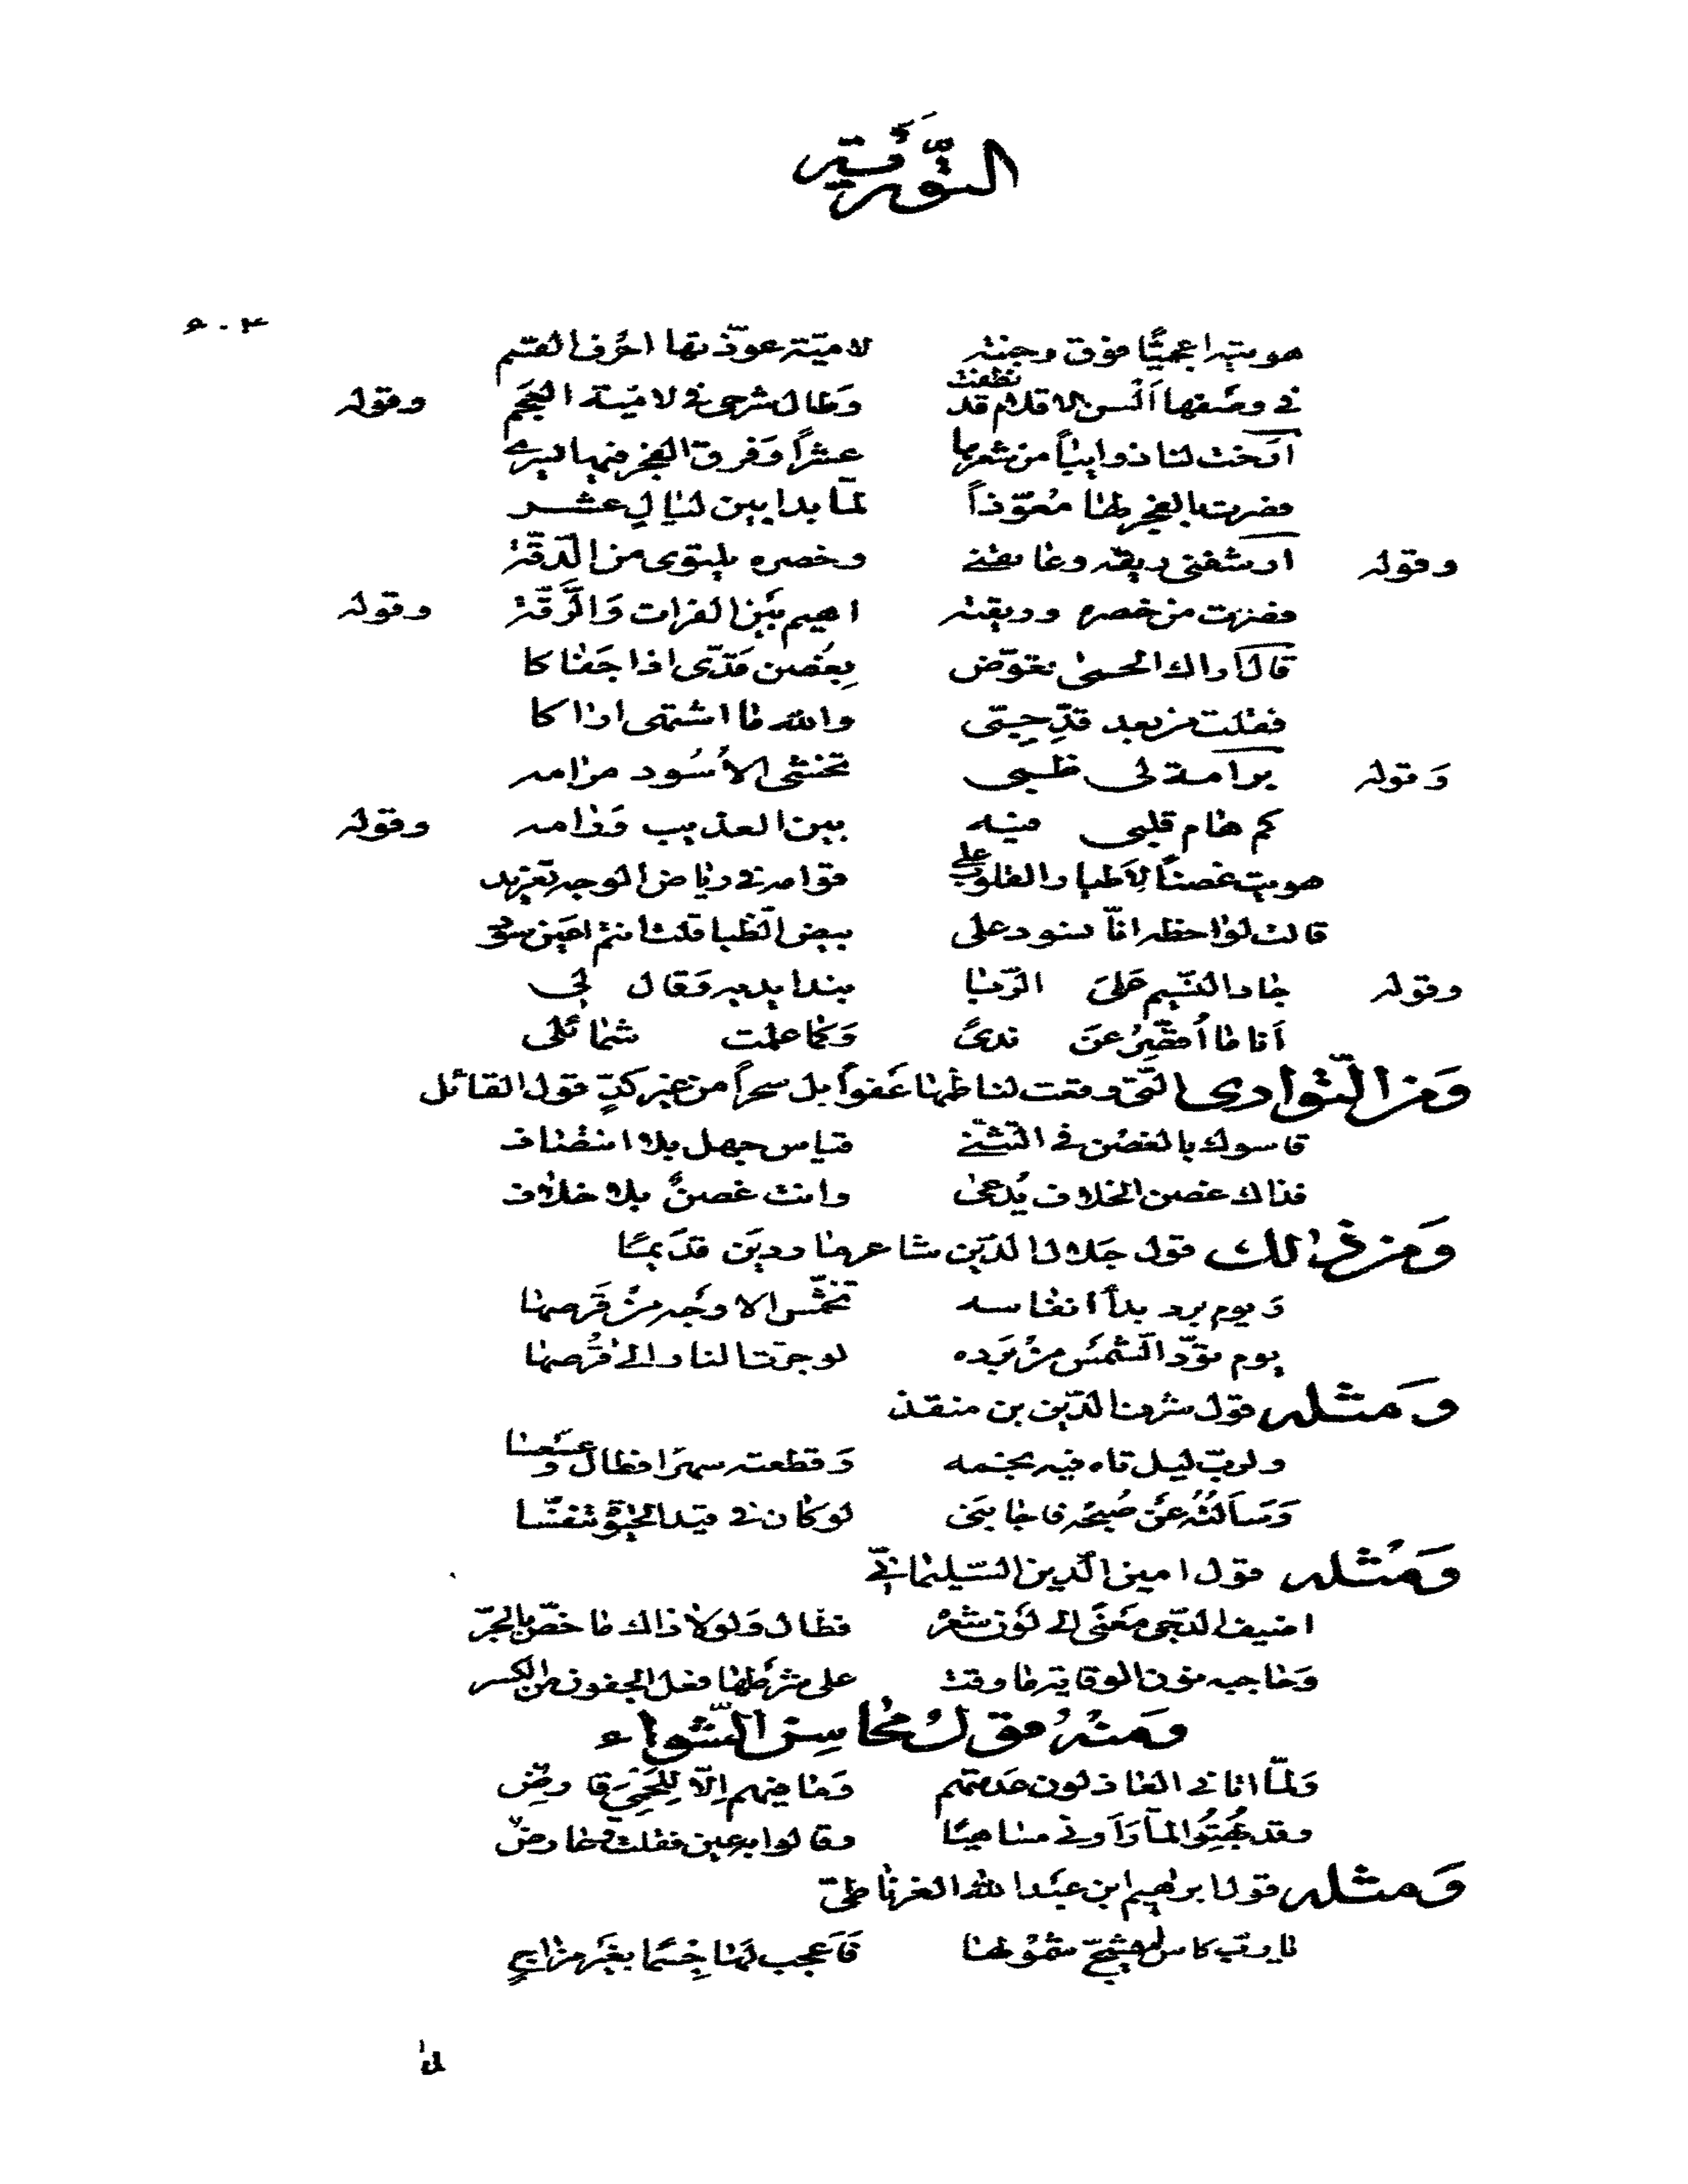 التَّورِيَة
هويته اعجميًّا فوق وجنته لاميّة عوّذتها احرُف القسم
في وصفها اَلسن الاقلام قد نطقت وَطال شرحي في لاميّة العَجَم وقوله
اَرخت لنا ذوايبًا من شعرها عشراً وَفرق الفجر فيها يسري
فصرت بالفجر لها مُعوّذاً لمّا بدا بين ليالٍ عشر
وقوله ارشفني ريقه وعانقني وخصره يلتوي من الدّقّة
فصرت من خصره وريقته اهيم بَين الفرات وَالرَّقّة وقوله
قال اراك الحمى تعوّض بِغُصن قدّي اذا جَفاكا
فقلت من بعد قدِّ حِبّي والله ما اشتهى اراكا
وَقوله برامة لي ظبي تخشى الاُسُود مرامه
كم هام قلبي فيه بين العذيب وَرامه وقوله
هويت غصنًا لاَطيار القلوب على قوامه في رياض الوجد تغريد
قالت لواحظه انّا نسود على بيض الظّبا قلت انتم اعيَن سُود
وقوله جاد النسّيم عَلىَ الرّبا بندا يديه وَقال لي
اَنا ما اُقصّرُ عنَ ندىً وَكما علمت شمائلي
وَمن النّوادر التّي وقعت لناظمها عَفواً بل سحراً من غير كدٍّ قول القائل
قاسوك بالغصُن في التثنّي قياس جهل بلا انتصاف
فذاك غصن الخلاف يُدعى وانت غصنٌ بلا خلاف
وَمن ذٰلك قول جَلال الدّين شاعر ماردين قدَيمًا
وَيوم برد بدأ انفاسه تخمّش الاوجه من قَرصها
يوم تودّ الشّمسُ من بَرده لو جرّت النار الى قُرصها
وَمثله قول شرف الدّين بن منقذ
ولربّ ليل تاه فيه نجمه وَقطعته سهَرًا فطال وعسعسا
وَسَألتُهُ عَن صُبحه فاجابَني لو كان في قيد الحيٰوة تنفسّا
وَمُثله قول امين الدين السّليمانيّ
اضيف الدّجى معَنىً الى لَون شعره فطال وَلولا ذاك ما خصّ بالجرّ
وَحاجبه نون الوقاية ما وقت على شرطها فعل الجفون من الكسر
وَمنهُ قول مُحاسِن الشّواء
وَلمّا اتاني العاذلون عَدمتهم وَما فيهم اِلّا لِلَحمِيَ قارضٌ
وقد بُهِتُوا لمّا رَاَوني شاحبًا وقالوا به عين فقلت وعارضٌ
وَمثله قول ابرٰهيم ابن عَبد الله الغرناطيّ
يا ربّ كاس لم يشجّ شموُلها فَاَعجب لهَا جِسمًا بغَير مزاجٍ